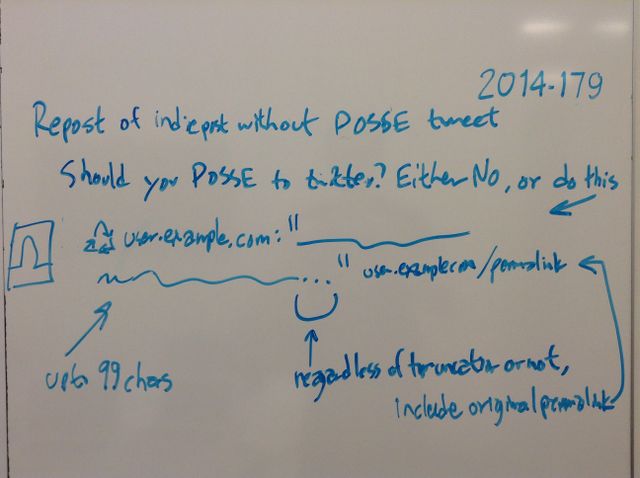 2014-179
Repost of indiepost without POSSE tweet
Should you POSSE to twitter? Either No, or do this
♺ user.example.com: "
..." user.example.com/permalink
upto 99 chars
regardless of truncation or not,
include original permalink